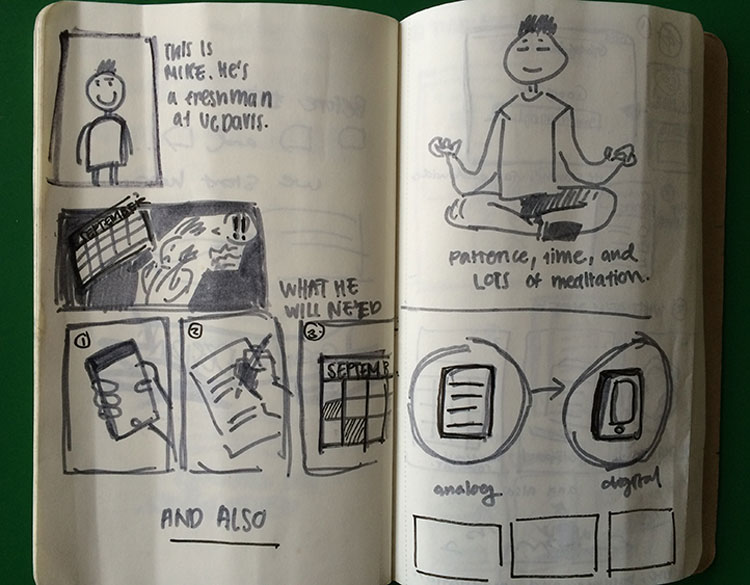 THIS IS
MIKE. HE'S
a freshman
at UC DAVIS.
SEPTEMBER
!!
WHAT HE
WILL NEED
1
2
3
SEPTEMB
AND ALSO
patience, time, and
LOTS of meditation.
analog
digital